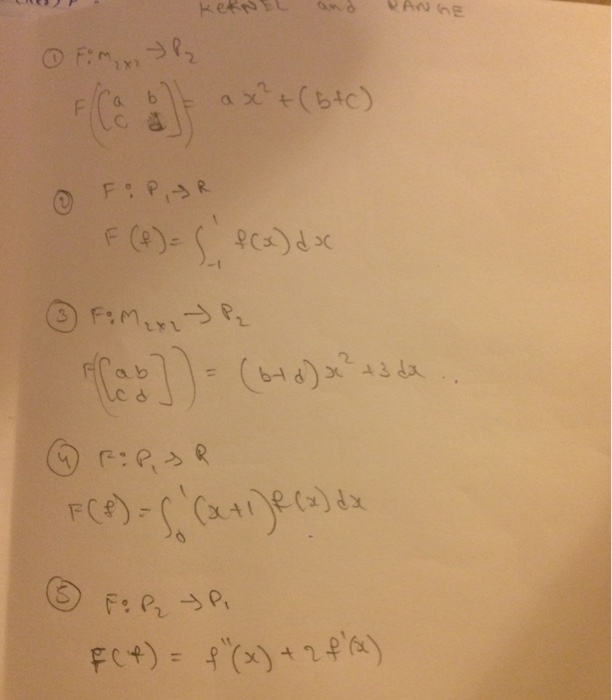 KERNEL and RANGE
① F: M₂ₓ₂ → P₂
F([a b
c d]) = ax² + (b+c)
② F: P₁ → R
F(f) = ∫₋₁¹ f(x) dx
③ F: M₂ₓ₂ → P₂
F([a b
c d]) = (b+d)x² + 3dx ..
④ F: P₁ → R
F(f) = ∫₀¹ (x+1) f(x) dx
⑤ F: P₂ → P₁
F(f) = f''(x) + 2f'(x)